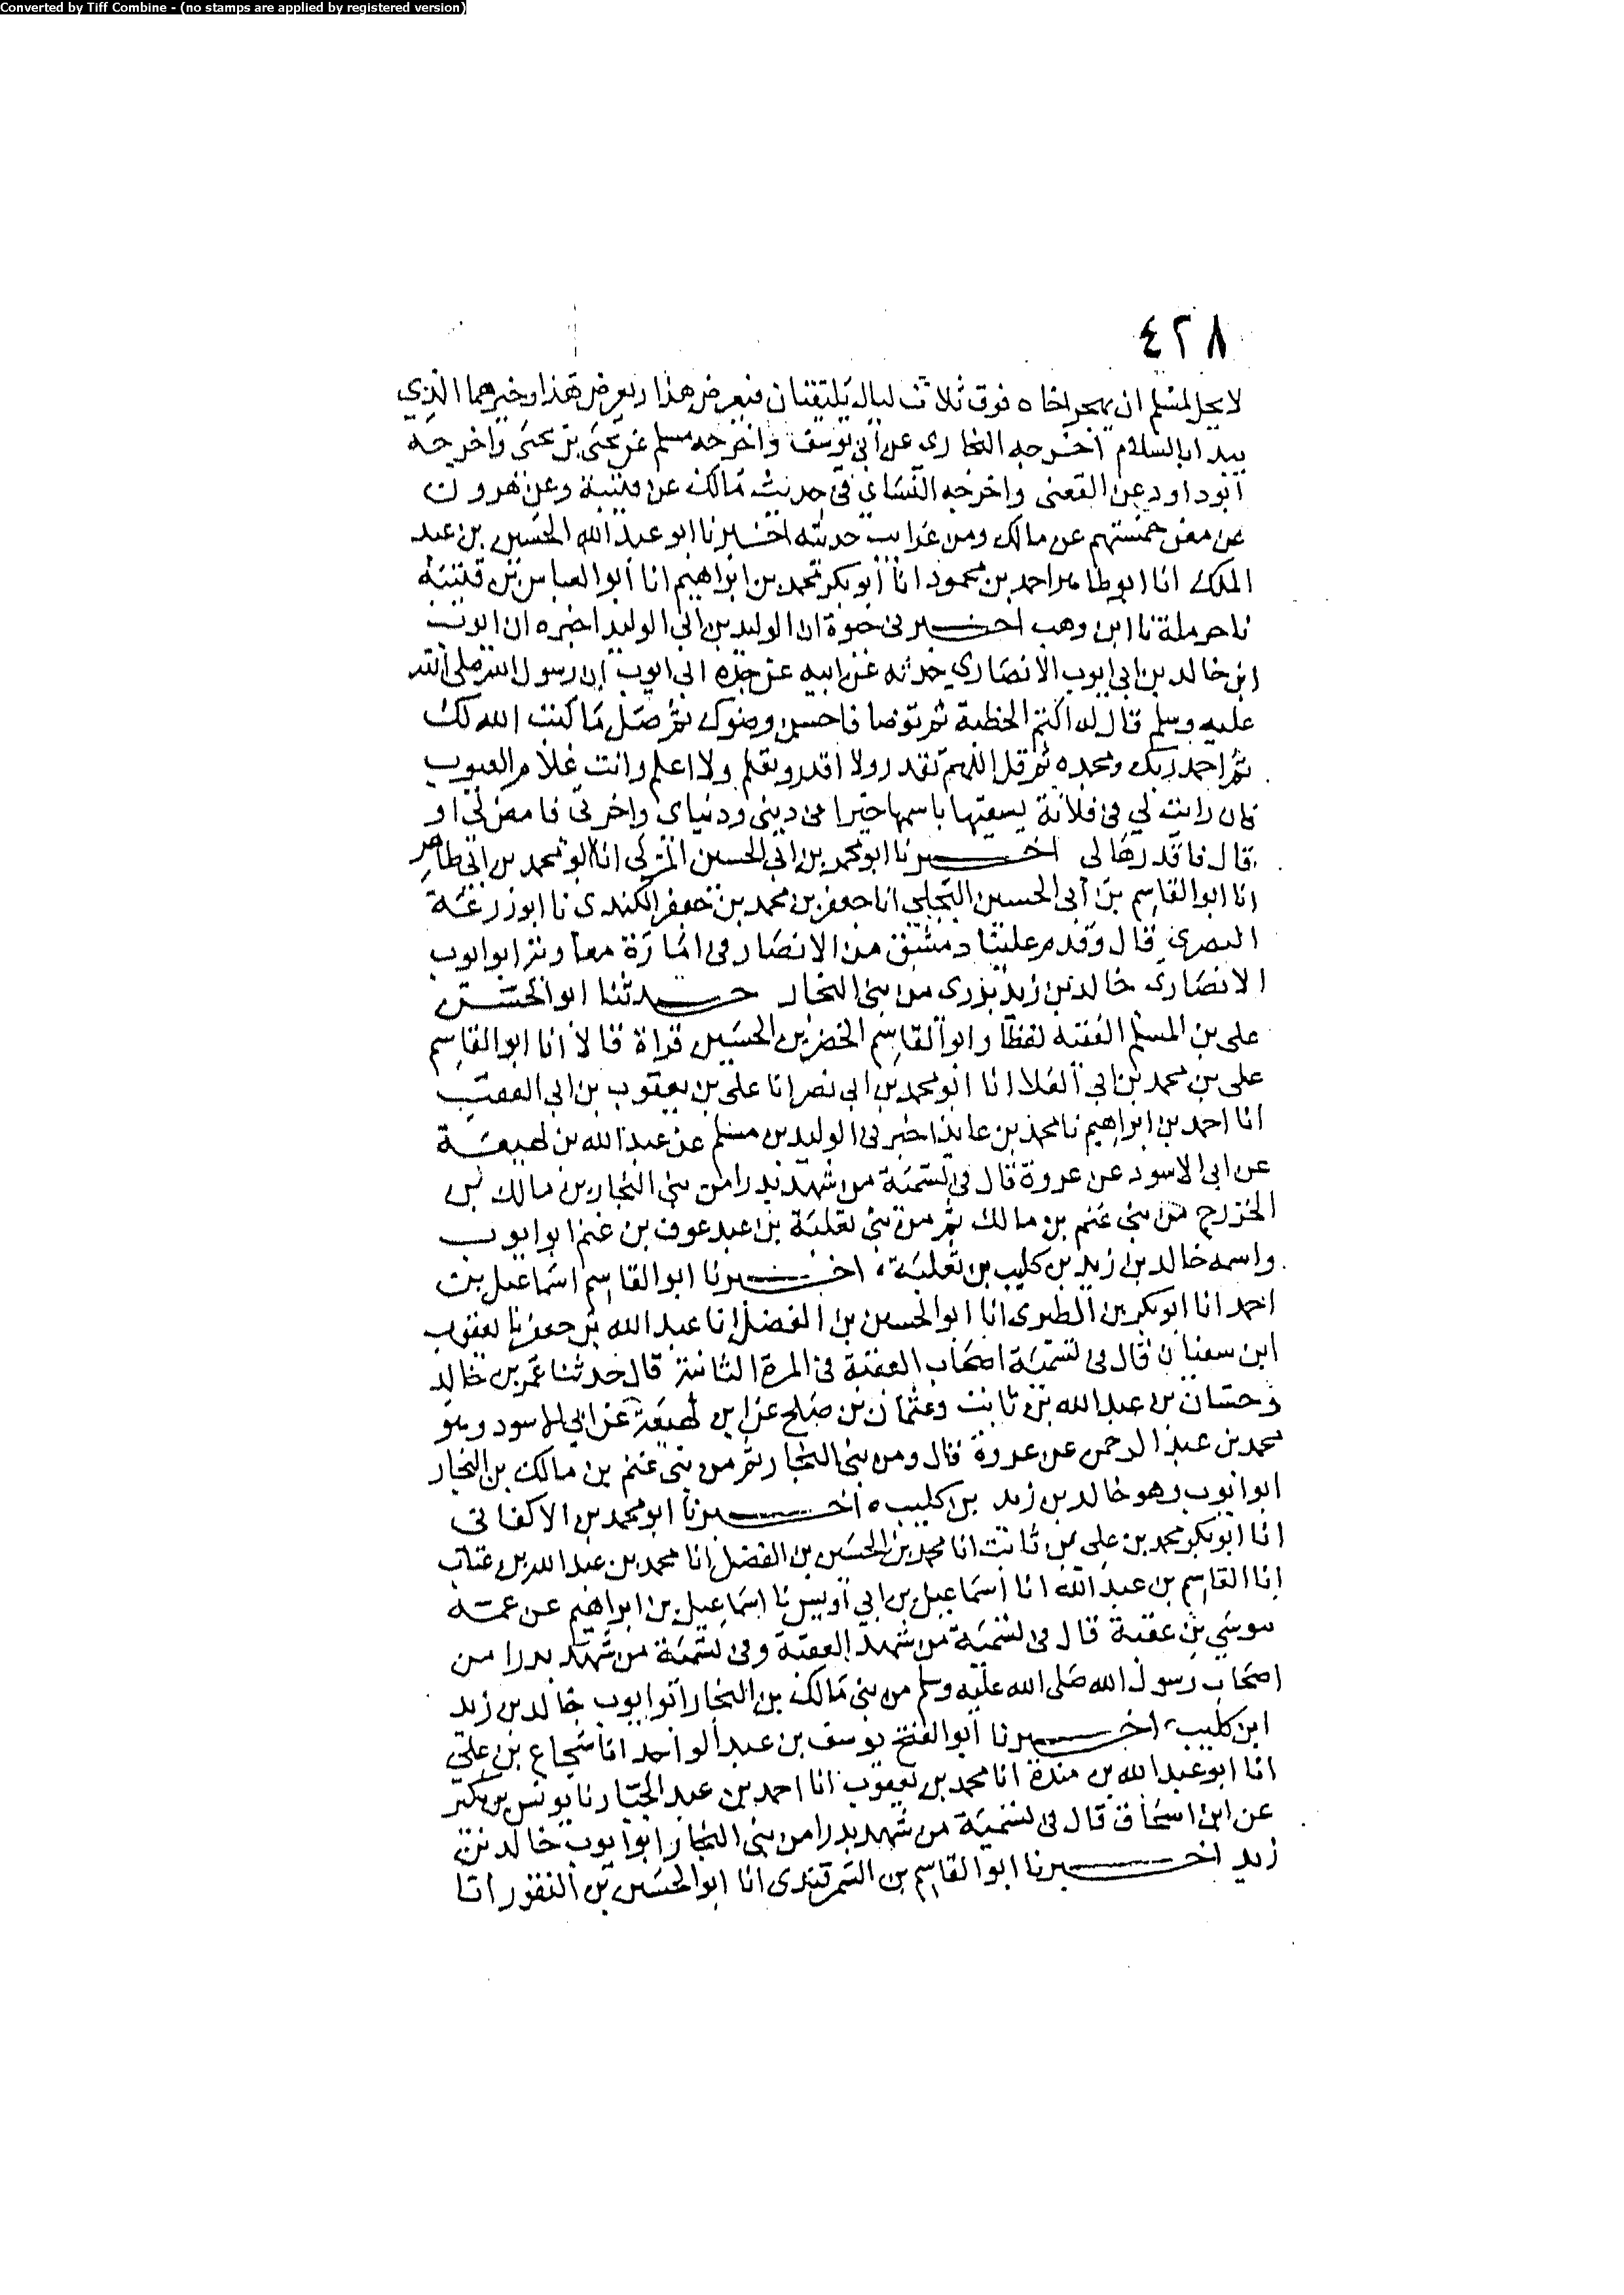 Converted by Tiff Combine - (no stamps are applied by registered version)
٤٢٨
لا يحل لمسلم ان يهجر اخاه فوق ثلاث ليال يلتقيان فيعرض هذا ويعرض هذا وخيرهما الذي
يبدا بالسلام اخرجه البخاري عن ابي يوسف واخرجه مسلم عن يحيى بن يحيى واخرجه
ابو داود عن القعنبي واخرجه النساي في حديث مالك عن قتيبة وعن هرون
عن معن خمستهم عن مالك ومن غرايب حديثه اخبرنا ابو عبد الله الحسين بن عبد
الملك انا ابو طاهر احمد بن محمود انا ابو بكر محمد بن ابراهيم انا أبو العباس بن قتيبة
نا حرملة نا ابن وهب اخبرني حيوة ان الوليد بن ابي الوليد اخبره ان ايوب
ابن خالد بن ابي ايوب الانصاري حدثه عن ابيه عن جده ابي ايوب ان رسول الله صلى الله
عليه وسلم قال له اكتم الخطبة ثم توضا فاحسن وضوك ثم صل ما كتب الله لك
ثم احمد ربك ومجده ثم قل اللهم تقدر ولا اقدر وتعلم ولا اعلم وانت علام الغيوب
فان رايت لي في فلانة يسميها باسمها خيرا في ديني ودنياي واخرتي فامض لي او
قال فاقدرها لي اخبرنا ابو محمد بن ابي الحسين المزكي انا ابو محمد بن ابي طاهر
انا ابو القاسم بن أبي الحسين البجلي انا جعفر بن محمد بن جعفر الكندي نا ابو زرعة
البصري قال وقدم علينا دمشق من الانصار في امارة معاوية ابو ايوب
الانصاري خالد بن زيد بدري من بني النجار حدثنا ابو الحسن
علي بن المسلم الفقيه لفظا وابو القاسم الخضر بن الحسين قراة قالا انا ابو القاسم
علي بن محمد بن ابي العلا انا ابو محمد بن ابي نصر انا علي بن يعقوب بن ابي العقب
انا احمد بن ابراهيم نا محمد بن عايذ اخبرني الوليد بن مسلم عن عبد الله بن لهيعة
عن ابي الاسود عن عروة قال في تسمية من شهد بدرا من بني النجار بن مالك بن
الخزرج من بني غنم بن مالك ثم من بني ثعلبة بن عبد عوف بن غنم ابو ايوب
واسمه خالد بن زيد بن كليب بن ثعلبة، اخبرنا ابو القاسم اسماعيل بن
احمد انا ابو بكر بن الطبري انا ابو الحسين بن الفضل انا عبد الله بن جعفر نا يعقوب
ابن سفيان قال في تسمية اصحاب العقبة في المرة الثانية قال حدثنا عمرو بن خالد
وحسان بن عبد الله بن ثابت وعثمان بن صلح عن ابن لهيعة عن ابي الاسود وهو
محمد بن عبد الرحمن عن عروة قال ومن بني النجار ثم من بني غنم بن مالك بن النجار
ابو ايوب وهو خالد بن زيد بن كليب ه اخبرنا ابو محمد بن الاكفاني
انا ابو بكر محمد بن علي بن ثابت انا محمد بن الحسين بن الفضل انا محمد بن عبد الله بن عتاب
انا القاسم بن عبد الله انا اسماعيل بن ابي أويس نا اسماعيل بن ابراهيم عن عمه
موسي بن عقبة قال في تسمية من شهد العقبة وفي تسمية من شهد بدرا من
اصحاب رسول الله صلى الله عليه وسلم من بني مالك بن النجار ابو ايوب خالد بن زيد
ابن كليب، اخبرنا ابو الفتح يوسف بن عبد الواحد انا شجاع بن علي
انا ابو عبد الله بن مندة انا محمد بن يعقوب انا احمد بن عبد الجبار نا يونس بن بكير
عن ابن اسحاق قال في تسمية من شهد بدرا من بني النجار ابو ايوب خالد بن
زيد اخبرنا ابو القاسم بن السمرقندي انا ابو الحسين بن النقور انا